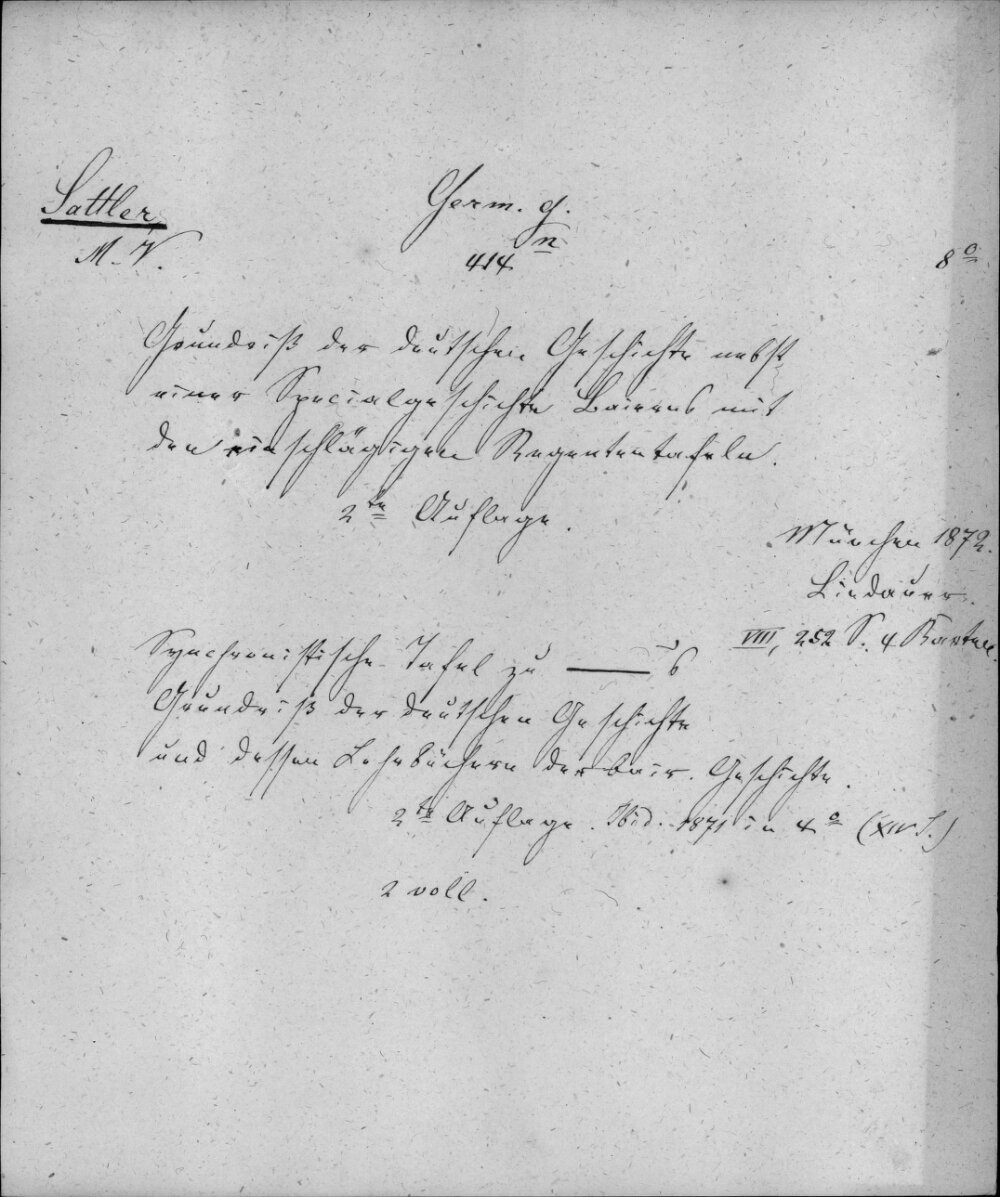 Sattler,
M. V.
Germ. g.
414 n
8o
Grundriß der deutschen Geschichte nebst
einer Specialgeschichte Baierns mit
den einschlägigen Regententafeln.
2te Auflage.
München 1872.
Lindauer.
VIII, 252 S. 4 Karten.
Synchronistische Tafel zu ——'s
Grundriß der deutschen Geschichte
und dessen Lehrbüchern der bair. Geschichte.
2te Auflage. Ibid. 1871 in 4o (XIV S.)
2 voll.